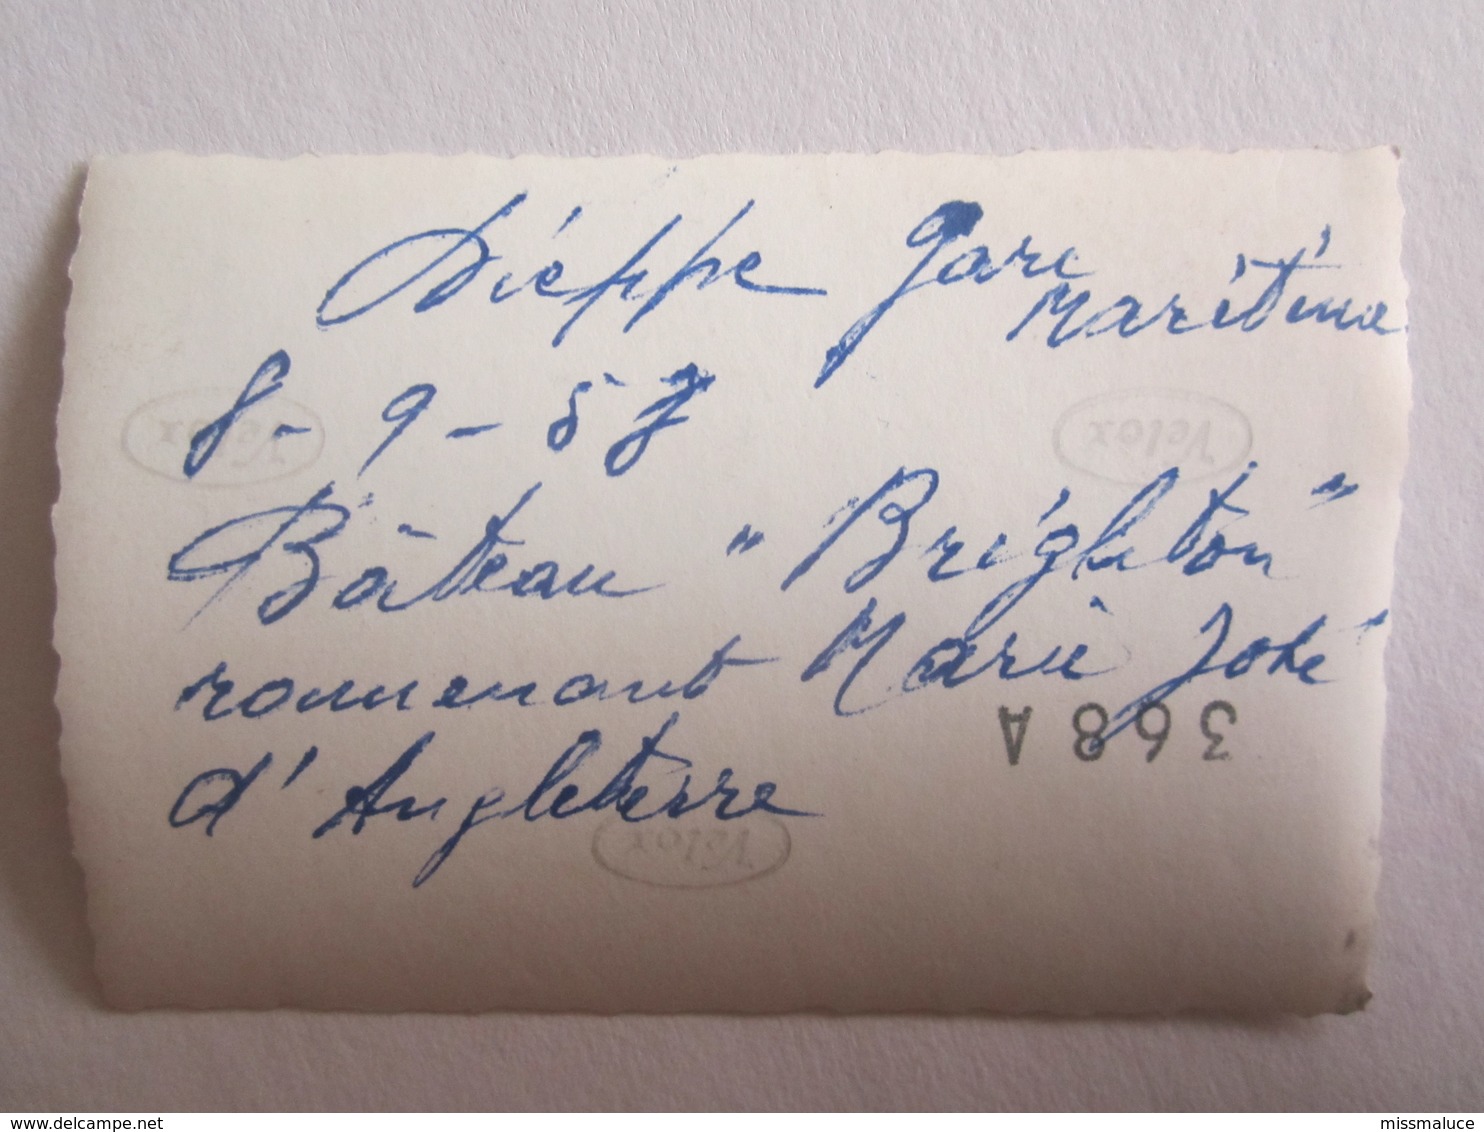 Dieppe Gare
Maritime
8-9-57
Bâteau "Brighton"
ramenant Marie José
d'Angleterre
368A
Velox
Velox
Velox
missmaluce
© www.delcampe.net